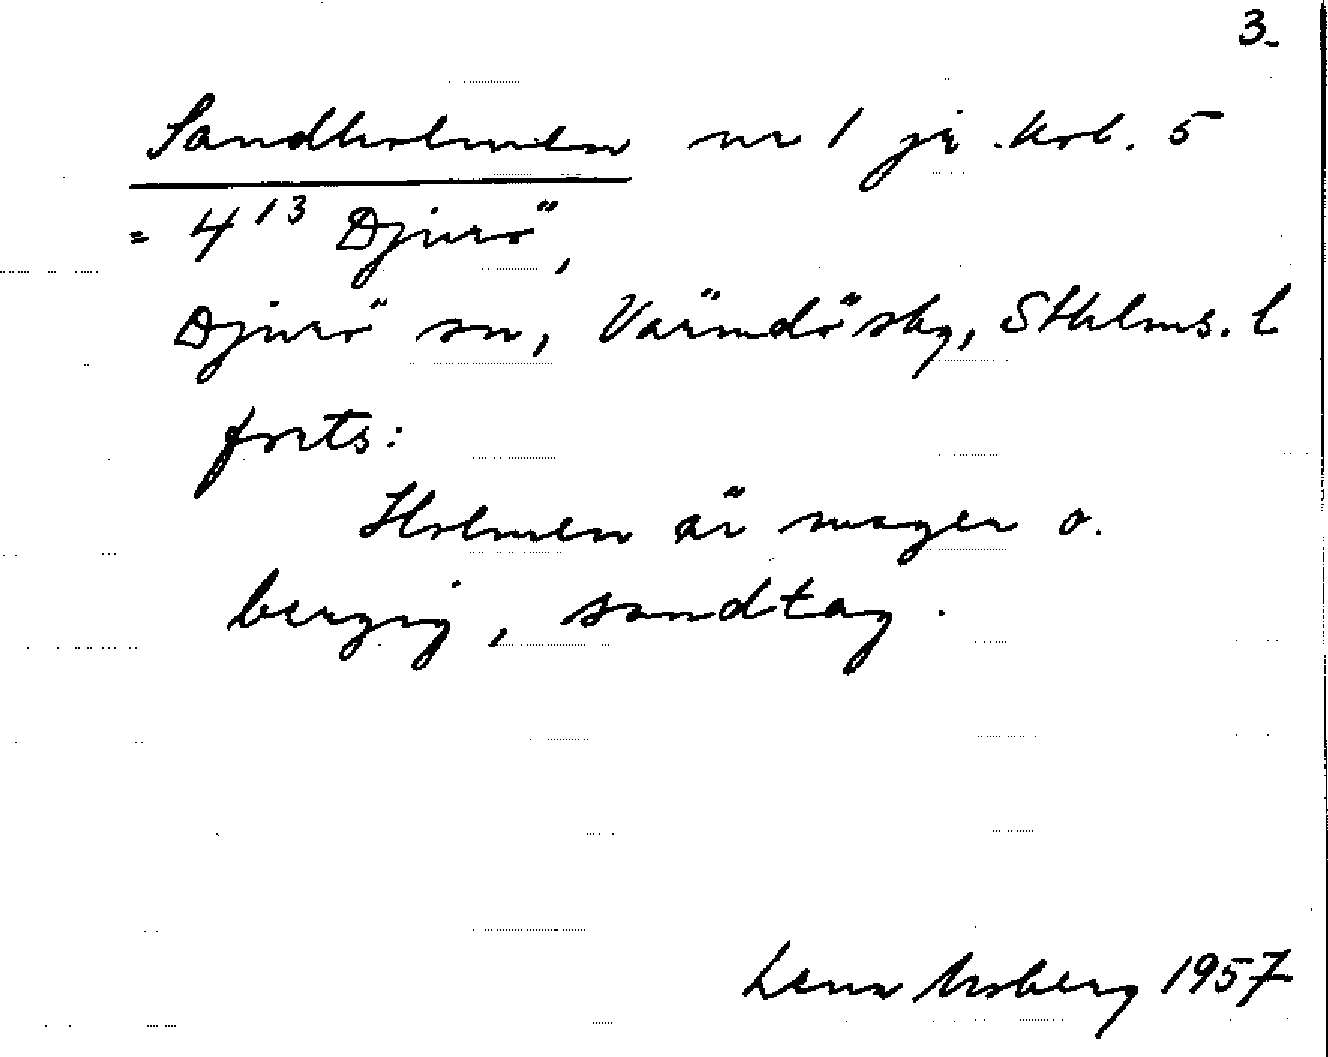 3.
Sandholmen nr 1 jr. kol. 5
= 4¹³ Djurö,
Djurö sn, Värmdö skg, Sthlms. l
forts:
Holmen är mager o.
bergig, sandtag.
Lena Moberg 1957